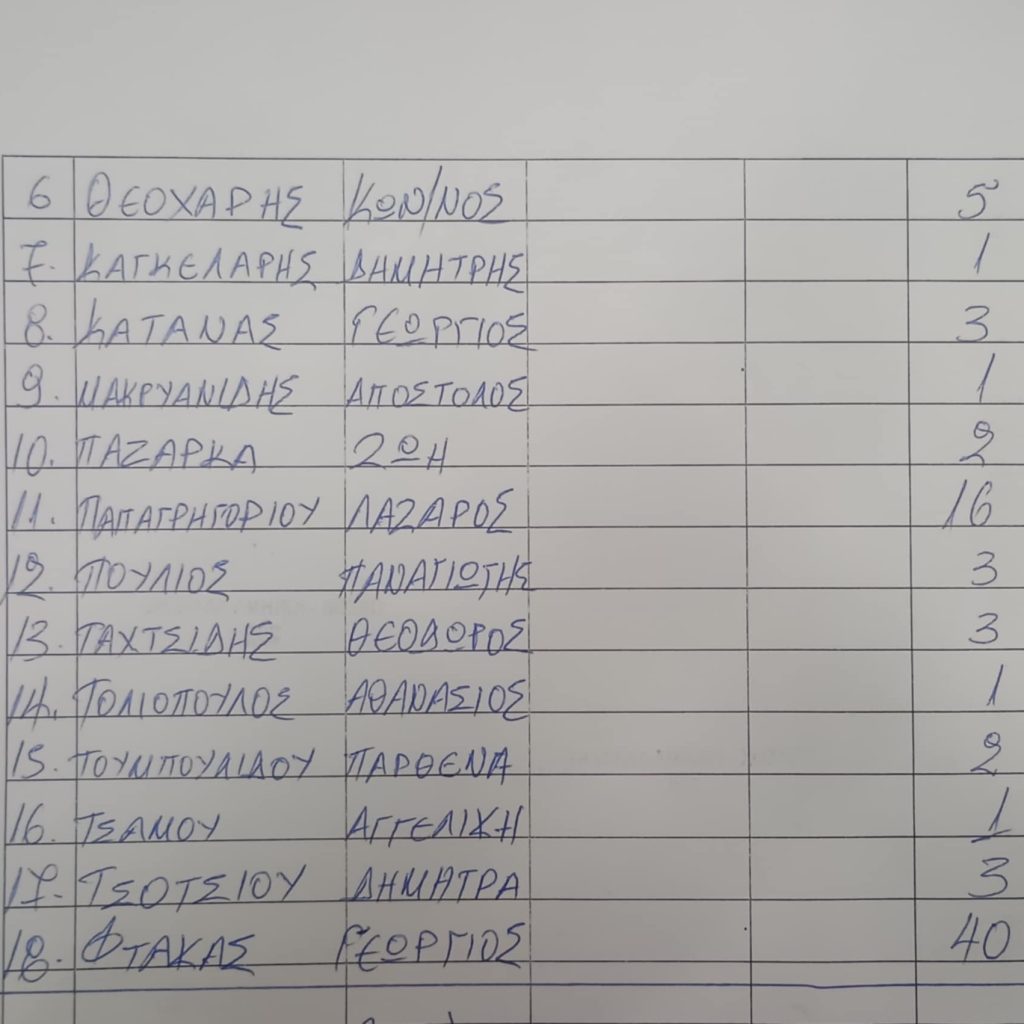 6 ΘΕΟΧΑΡΗΣ ΚΩΝ/ΝΟΣ 5
7. ΚΑΓΚΕΛΑΡΗΣ ΔΗΜΗΤΡΗΣ 1
8. ΚΑΤΑΝΑΣ ΓΕΩΡΓΙΟΣ 3
9. ΜΑΚΡΥΑΝΙΔΗΣ ΑΠΟΣΤΟΛΟΣ 1
10. ΠΑΖΑΡΚΑ ΖΩΗ 2
11. ΠΑΠΑΓΡΗΓΟΡΙΟΥ ΛΑΖΑΡΟΣ 16
12. ΠΟΥΛΙΟΣ ΠΑΝΑΓΙΩΤΗΣ 3
13. ΤΑΧΤΣΙΔΗΣ ΘΕΟΔΩΡΟΣ 3
14. ΤΟΛΙΟΠΟΥΛΟΣ ΑΘΑΝΑΣΙΟΣ 1
15. ΤΟΥΜΠΟΥΛΙΔΟΥ ΠΑΡΘΕΝΑ 2
16. ΤΣΑΜΟΥ ΑΓΓΕΛΙΚΗ 1
17. ΤΣΟΤΣΙΟΥ ΔΗΜΗΤΡΑ 3
18. ΦΤΑΚΑΣ ΓΕΩΡΓΙΟΣ 40